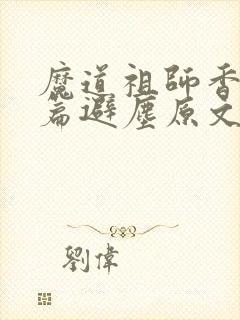 魔道祖師香
篇避塵原文
劉偉